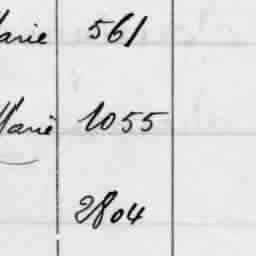 Marie 561
Marie 1055
2804